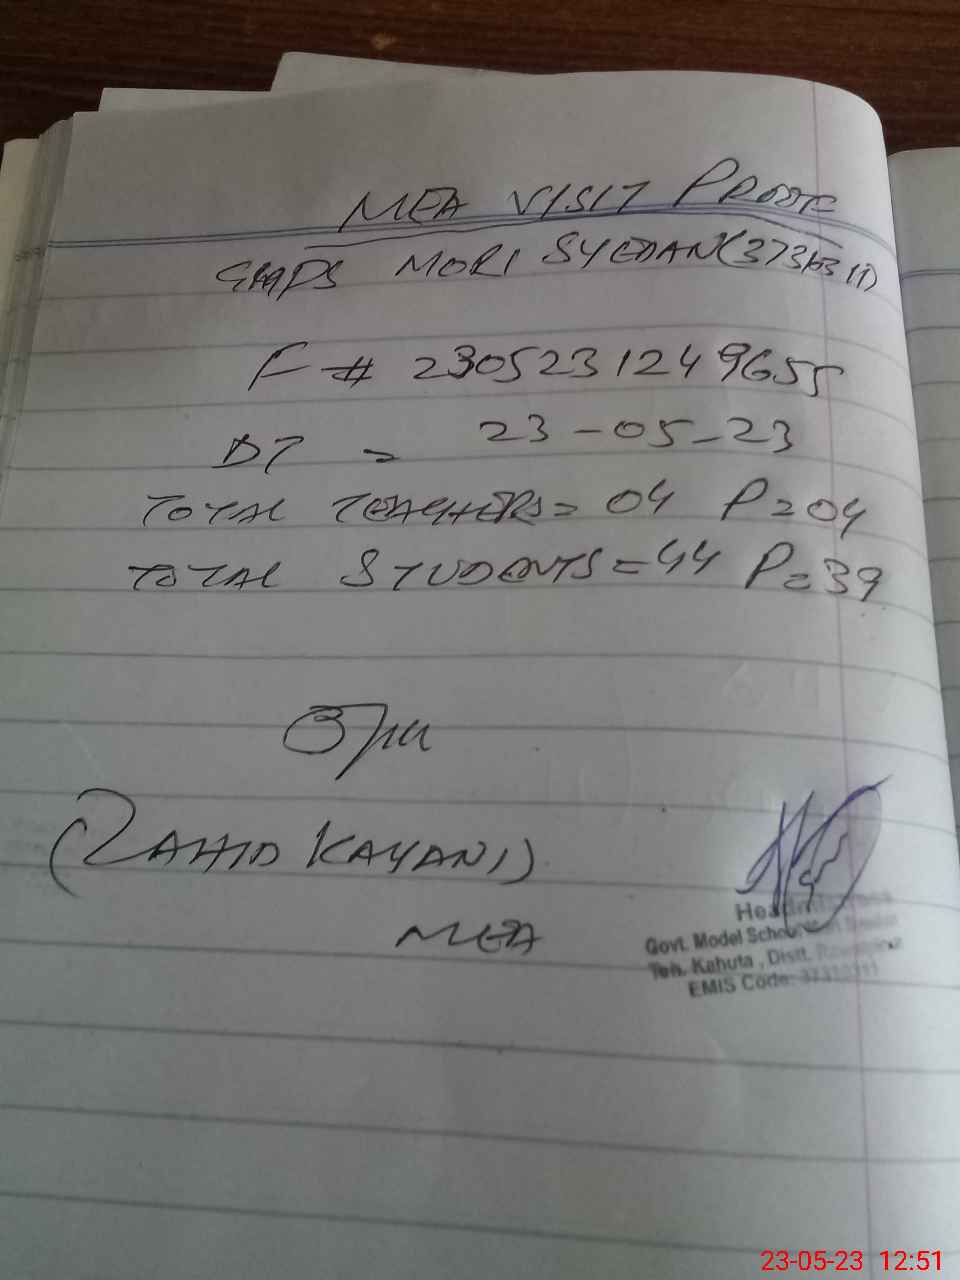 MEA VISIT PROOF
GMPS MORI SYEDAN (37310311)
F # 2305231249655
DT = 23-05-23
TOTAL TEACHERS = 04 P = 04
TOTAL STUDENTS = 44 P = 39
(ZAHID KAYANI)
MEA
Govt. Model School
Teh. Kahuta, Distt.
EMIS Code:
23-05-23 12:51